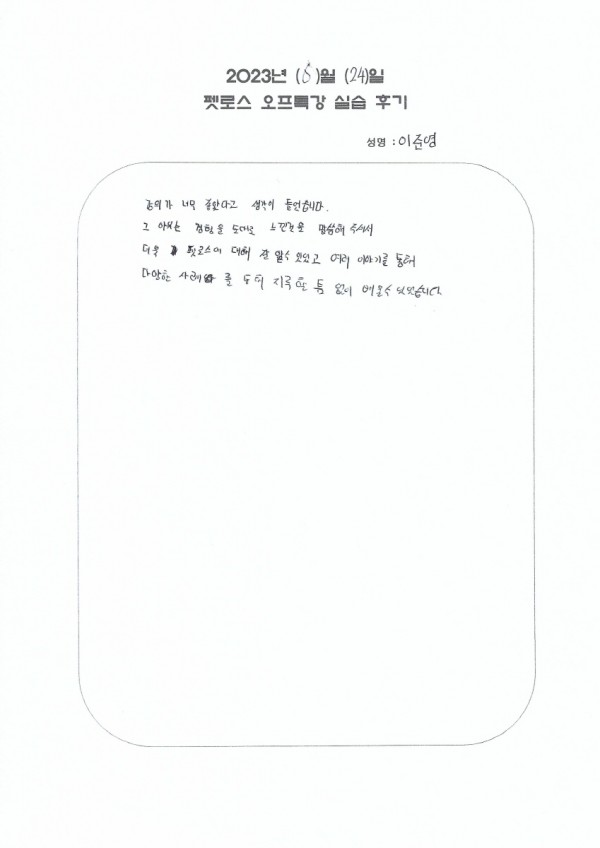 2023년 (8)월 (24)일
펫로스 오프특강 실습 후기
성명 : 이준영
강의가 너무 좋았다고 생각이 들었습니다.
그 이유는 경험을 느낀것을 말씀해 주셔서
더욱 펫로스에 대해 잘 알수 있었고 여러 이야기를 통해
다양한 사례를 들어 지루할 틈 없이 배울수 있었습니다.